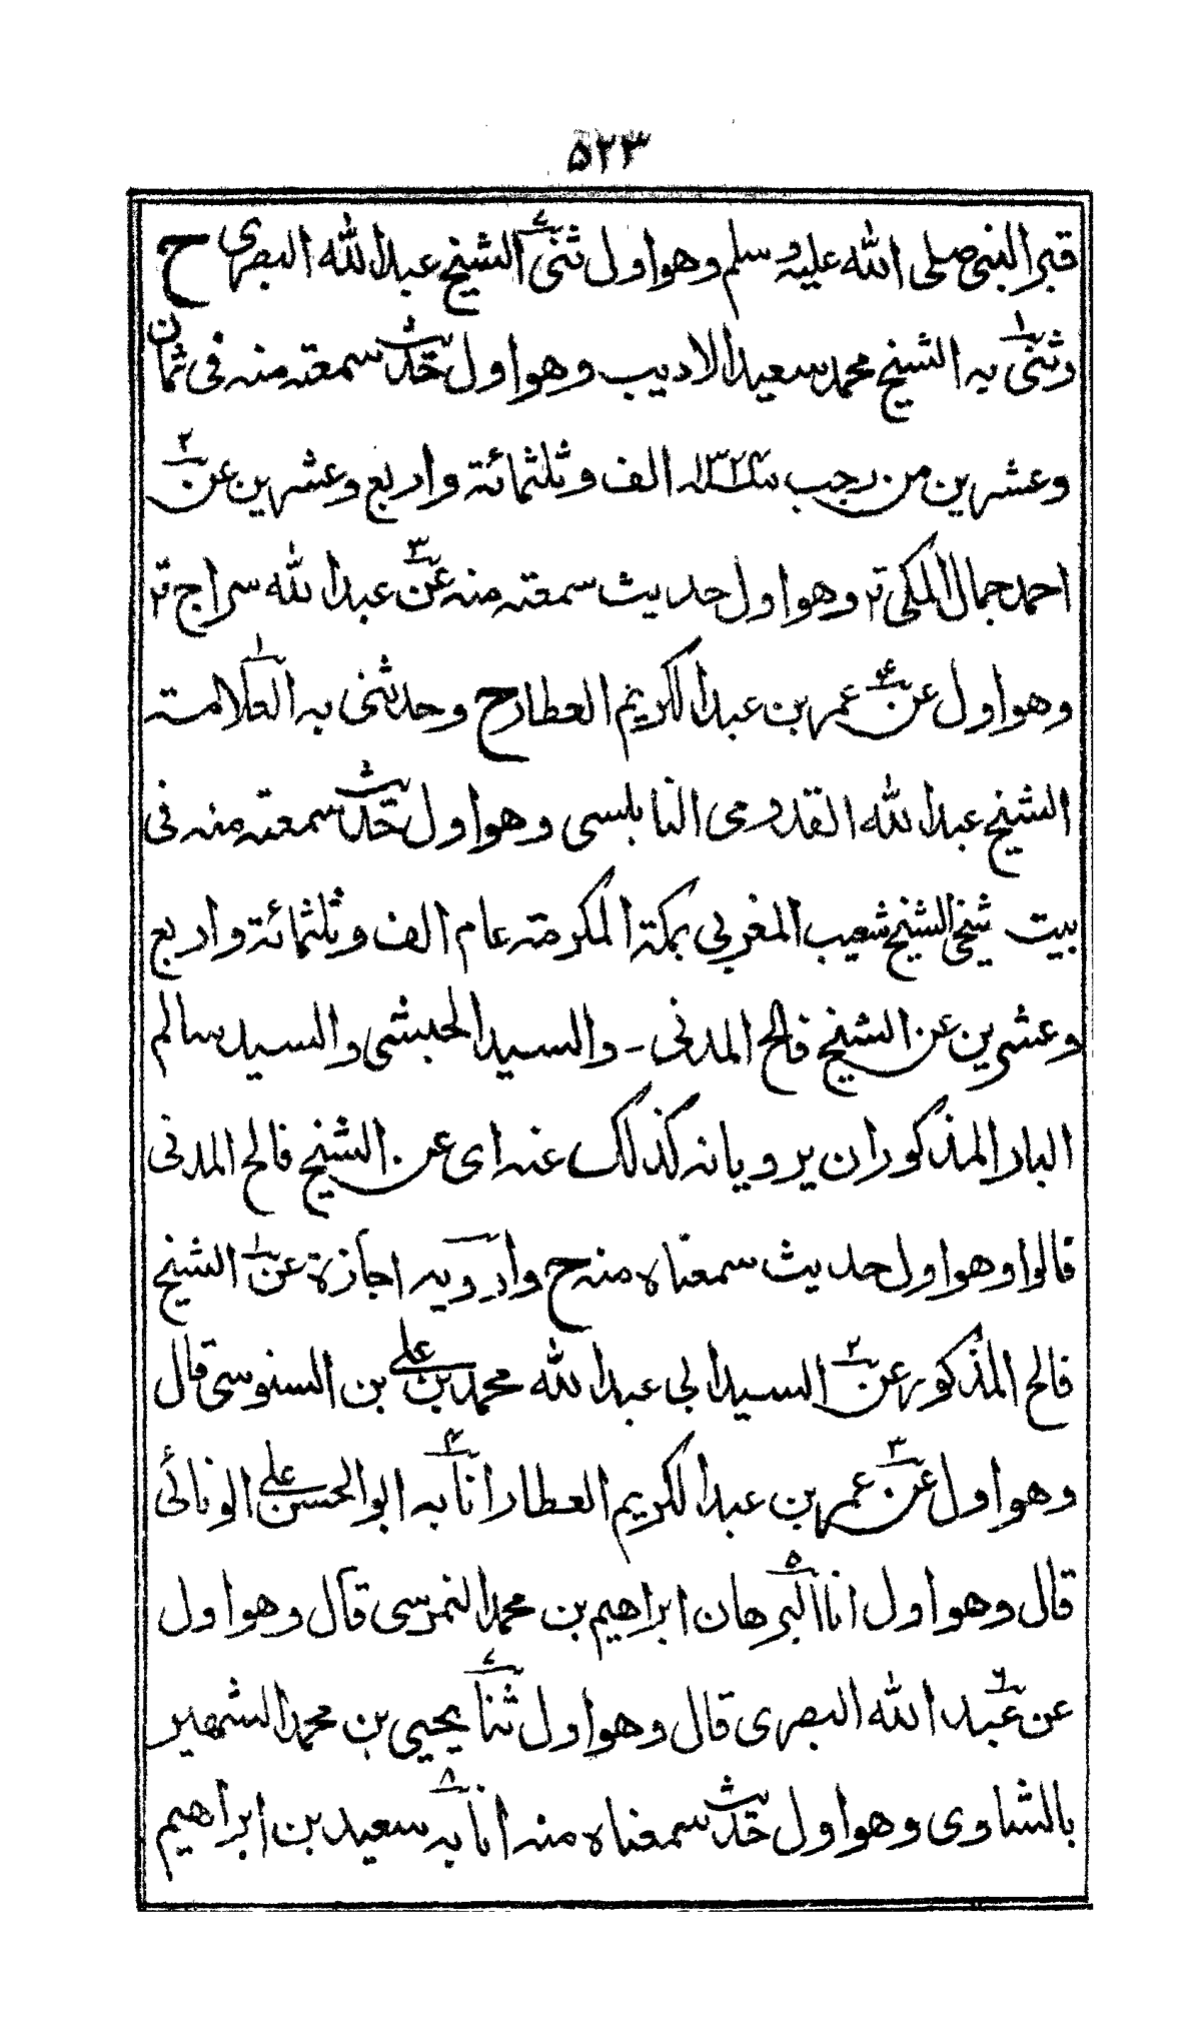 ۵۲۳
قبر النبی صلی الله علیه وسلم وهو اول ثنی۷ الشیخ عبد الله البصری ح
وثنی۱ به الشیخ محمد سعید الادیب وهو اول حدیث سمعته منه فی ثمان
وعشرین من رجب سنه ۱۳۲۴ الف وثلثمائة واربع وعشرین عن۲
احمد جمال المکی ۲ وهو اول حدیث سمعته منه عن۳ عبد الله سراج ۲
وهو اول عن۴ عمر بن عبد الکریم العطار ح وحدثنی به العلامة۱
الشیخ عبد الله القدومی النابلسی وهو اول حدیث سمعته منه فی
بیت شیخی الشیخ شعیب المغربی بمکة المکرمة عام الف وثلثمائة واربع
وعشرین عن الشیخ فالح المدنی - والسید الحبشی والسید سالم
البار المذکوران یرویانه کذلک عنه ای عن الشیخ فالح المدنی
قالوا وهو اول حدیث سمعناه منه ح وارویه اجازة عن۱ الشیخ
فالح المذکور عن۲ السید ابی عبد الله محمد بن علی بن السنوسی قال
وهو اول عن۳ عمر بن عبد الکریم العطار انا۴ به ابو الحسن علی الونائی
قال وهو اول انا۵ البرهان ابراهیم بن محمد النمرسی قال وهو اول
عن۶ عبد الله البصری قال وهو اول ثنا۷ یحیی بن محمد الشهیر
بالشاوی وهو اول حدیث سمعناه منه انا۸ به سعید بن ابراهیم